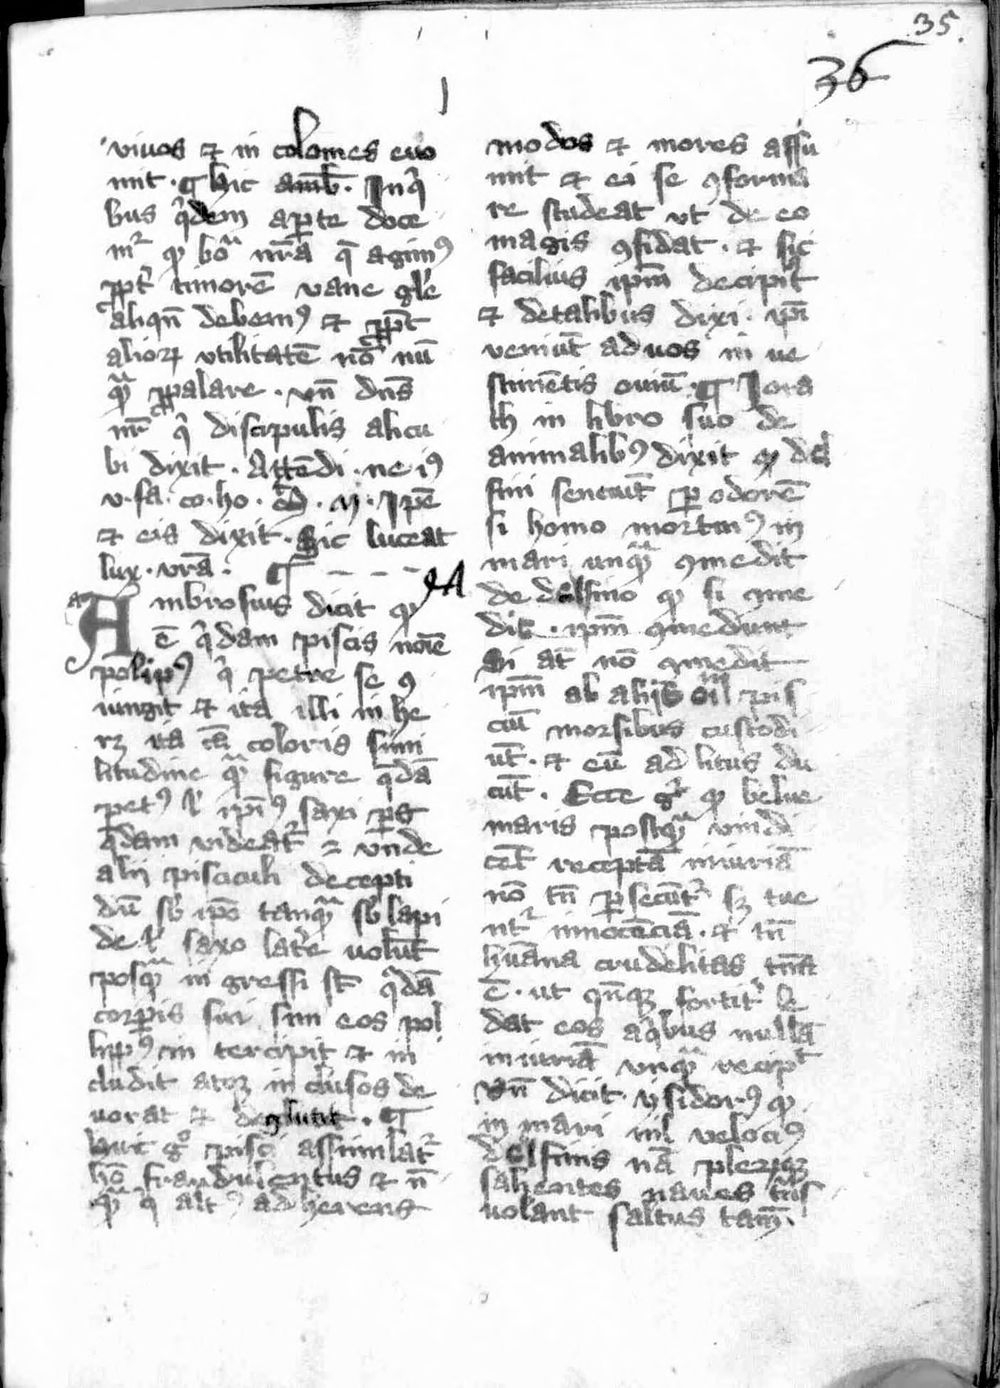 35.
36
viuos & in colomes euo
mit . ¶ hic amb̄ . Inq'
bus q'dem aꝑte doce
mr̄ ꝙ boᷓ nr̄a q̄ agim⁹
ꝓpt̄ timorē uane gl̄e
aliqn̄ debem⁹ & ꝓpt̄
alioꝝ vtilitatē nō nū
qᷓ ꝓpalare . vn̄ dn̄s
nr̄ q' discipulis alicu
bi dixit . Attēdi . ne i⁹
v . fa . co . ho . Ipē
& eis dixit . Sic luceat
lux . vr̄a . ¶
Ambrosius dicit ꝙ
ē q'dam piscis noīe
polip⁹ q' petre se ꝯ
iungit & ita illi in he
rꝫ ita tā coloris simi
litudine qᷓ figure q̄dā
pet⁹ ł ip̄i⁹ saxi ꝑs
q̄dam videat' vn̄de
alij pisciculi decepti
dū sb' ip̄o tanqᷓ sb' lapi
de ł saxo lat'e uolūt
posqᷓ in gressi st̄ q'dā
corꝑis sui sim eos pol
lipp⁹ in tercipit & in
cludit atqꝫ in clusos de
uorat & deglutit . ¶
huic gͦ pisci assimilat'
hō fraudulentus & n̄
qᷓ q' alt⁹ ad herens
modos & mores assu
mit & ei se ꝯforma
re studeat vt de eo
magis ꝯfidat . & sic
facilius ip̄m decipit
& detalibus dixi . ip̄i
veniūt ad uos in ue
stimētis ouiū . ¶ Iora
th in libro suo de
animalib⁹ dixit ꝙ del
fini senciūt ꝑ odorē
si homo mortuu⁹ in
mari unqᷓ ꝯmedit
de delfino ꝙ si ꝯme
dit . ip̄m ꝯmedunt
Si at̄ nō ꝯmedit
ip̄m ab aliis oīl pis
ciū morsibus custodi
ūt . & eū ad litus du
cūt . Ecce gͦ ꝙ belue
maris postqᷓ vindi
cet receptā iniuriā
nō tn̄ ꝑsecūt' sꝫ tue
nt' innocēciā . & tn̄
hūana crudelitas tn̄ta
ē . ut qn̄qꝫ fortit' le
dat eos aq'bus nullā
iniuriā vnqᷓ recipt
vn̄ dicit ysidor⁹ ꝙ
in mari nil veloci⁹
delfinis nā pleriqꝫ
salientes naues t̄ns
uolant saltus tam̄ .